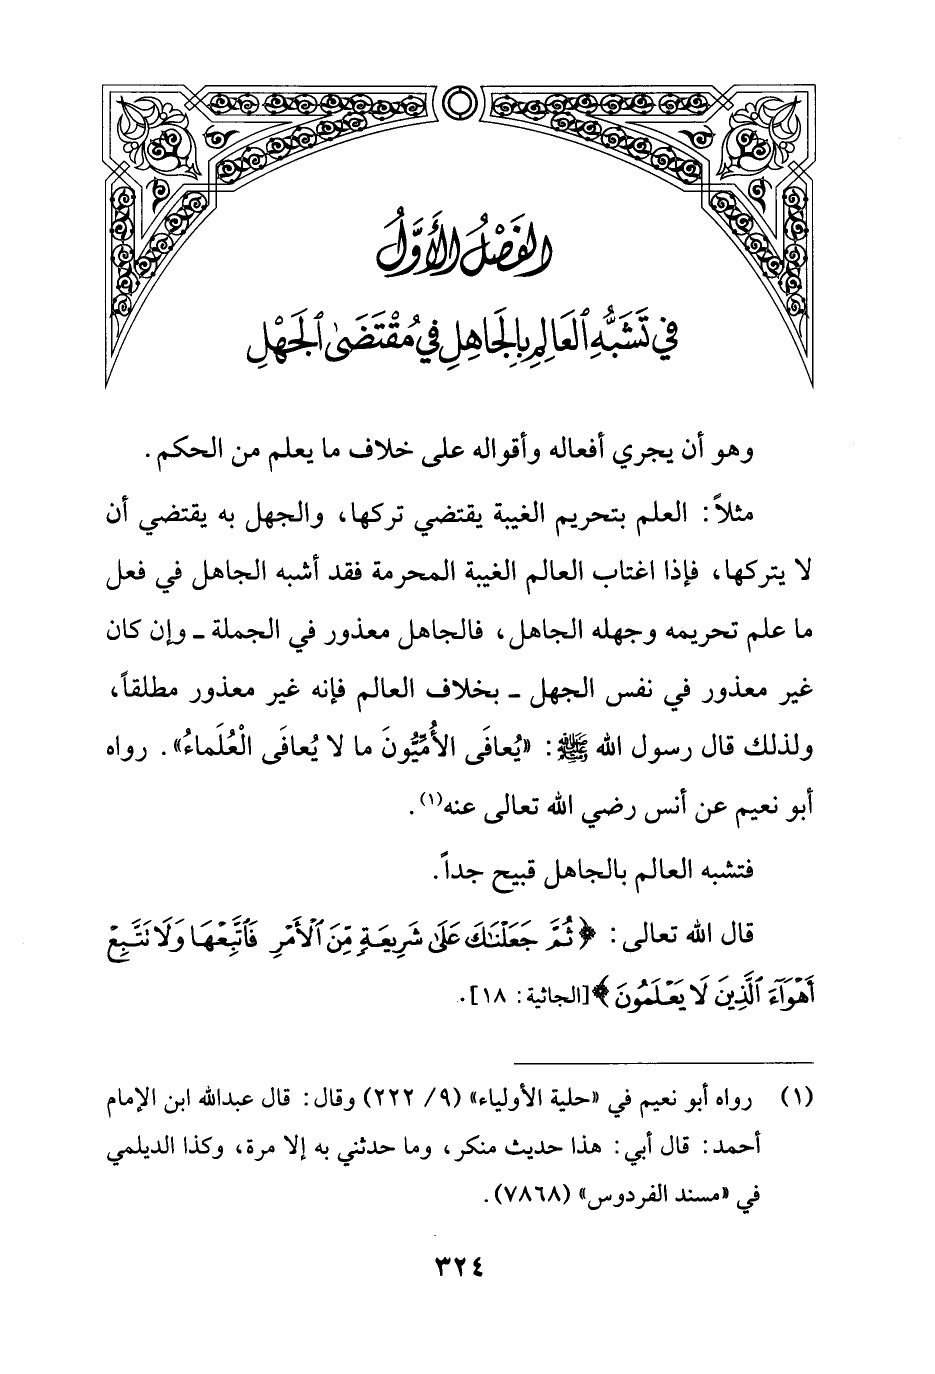 الفَصْلُ الأَوَّلُ
في تَشَبُّهِ العَالِمِ بِالجَاهِلِ في مُقْتَضَى الجَهْلِ
وهو أن يجري أفعاله وأقواله على خلاف ما يعلم من الحكم.
مثلاً: العلم بتحريم الغيبة يقتضي تركها، والجهل به يقتضي أن
لا يتركها، فإذا اغتاب العالم الغيبة المحرمة فقد أشبه الجاهل في فعل
ما علم تحريمه وجهله الجاهل، فالجاهل معذور في الجملة ـ وإن كان
غير معذور في نفس الجهل ـ بخلاف العالم فإنه غير معذور مطلقاً،
ولذلك قال رسول الله ﷺ: «يُعافَى الأُمِّيُّونَ ما لا يُعافَى الْعُلَماءُ». رواه
أبو نعيم عن أنس رضي الله تعالى عنه(١).
فتشبه العالم بالجاهل قبيح جداً.
قال الله تعالى: ﴿ثُمَّ جَعَلْنَٰكَ عَلَىٰ شَرِيعَةٍ مِّنَ ٱلْأَمْرِ فَٱتَّبِعْهَا وَلَا نَتَّبِعْ
أَهْوَآءَ ٱلَّذِينَ لَا يَعْلَمُونَ﴾[الجاثية: ١٨].
(١) رواه أبو نعيم في «حلية الأولياء» (٩/ ٢٢٢) وقال: قال عبدالله ابن الإمام
أحمد: قال أبي: هذا حديث منكر، وما حدثني به إلا مرة، وكذا الديلمي
في «مسند الفردوس» (٧٨٦٨).
٣٢٤